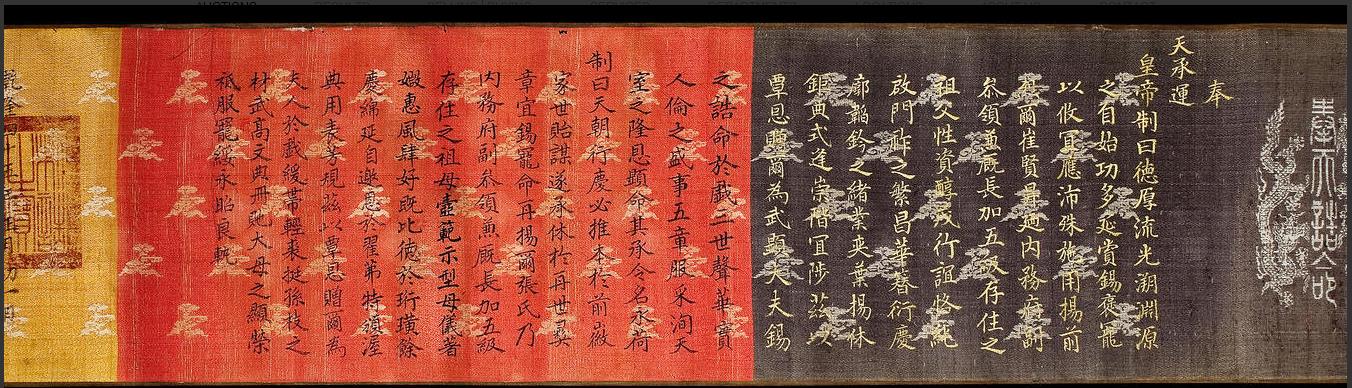 奉天誥命
奉
天承運
皇帝制曰德厚流光溯淵源
之自始功多延賞錫褒寵
以攸宜應沛殊施用揚前
烈爾崔賢昇廼內務府副
叅領兼廐長加五級存住之
祖父性資醇茂行誼恪純
啟門祚之繁昌華簪衍慶
廓韜鈐之緒業奕葉揚休
鉅典式逢崇階宜陟茲以
覃恩贈爾為武顯大夫錫
之誥命於戲三世聲華實
人倫之盛事五章服采洵天
室之隆恩顯命其承令名永荷
制曰天朝行慶必推本於前徽
家世貽謀遂承休於再世彝
章宜錫寵命再揚爾張氏乃
內務府副叅領兼廐長加五級
存住之祖母壼範示型母儀著
媺惠風肆好既比德於珩璜餘
慶綿延自邀恩於翟茀特頒渥
典用表芳規茲以覃恩贈爾為
夫人於戲緩帶輕裘挺孫枝之
材武高文典冊貤大母之顯榮
祗服寵綏永昭良軌